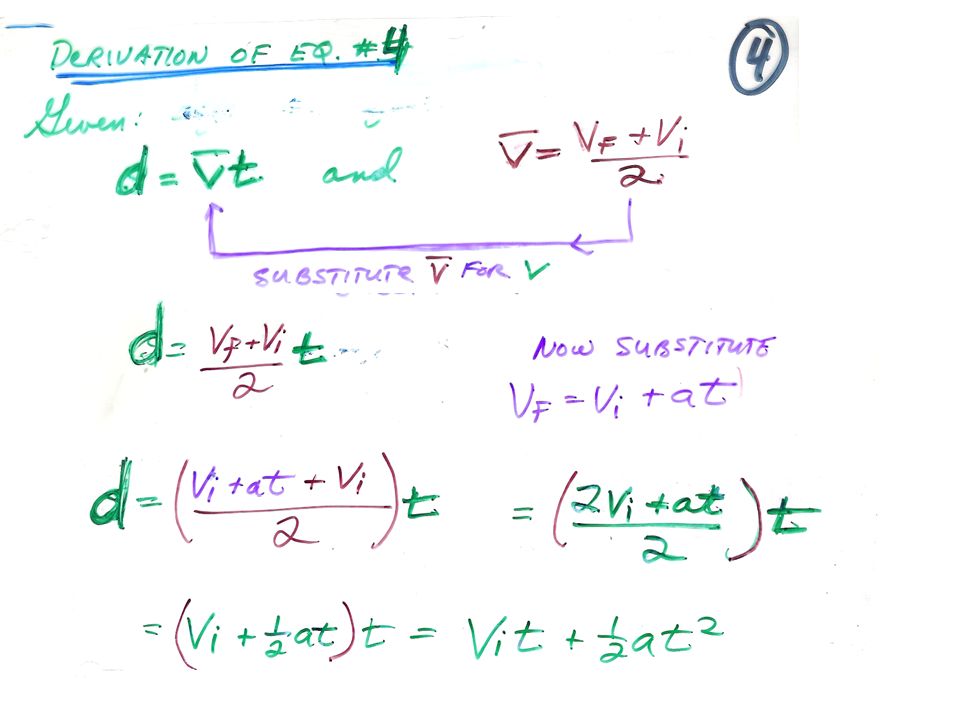 DERIVATION OF EQ. #4
4
Given:
d = V̅t and V̅ = (VF + Vi)/2
SUBSTITUTE V̅ FOR V
d = (Vf + Vi)/2 t
NOW SUBSTITUTE
VF = Vi + at
d = ((Vi + at + Vi)/2)t = ((2Vi + at)/2)t
= (Vi + ½at)t = Vit + ½at²